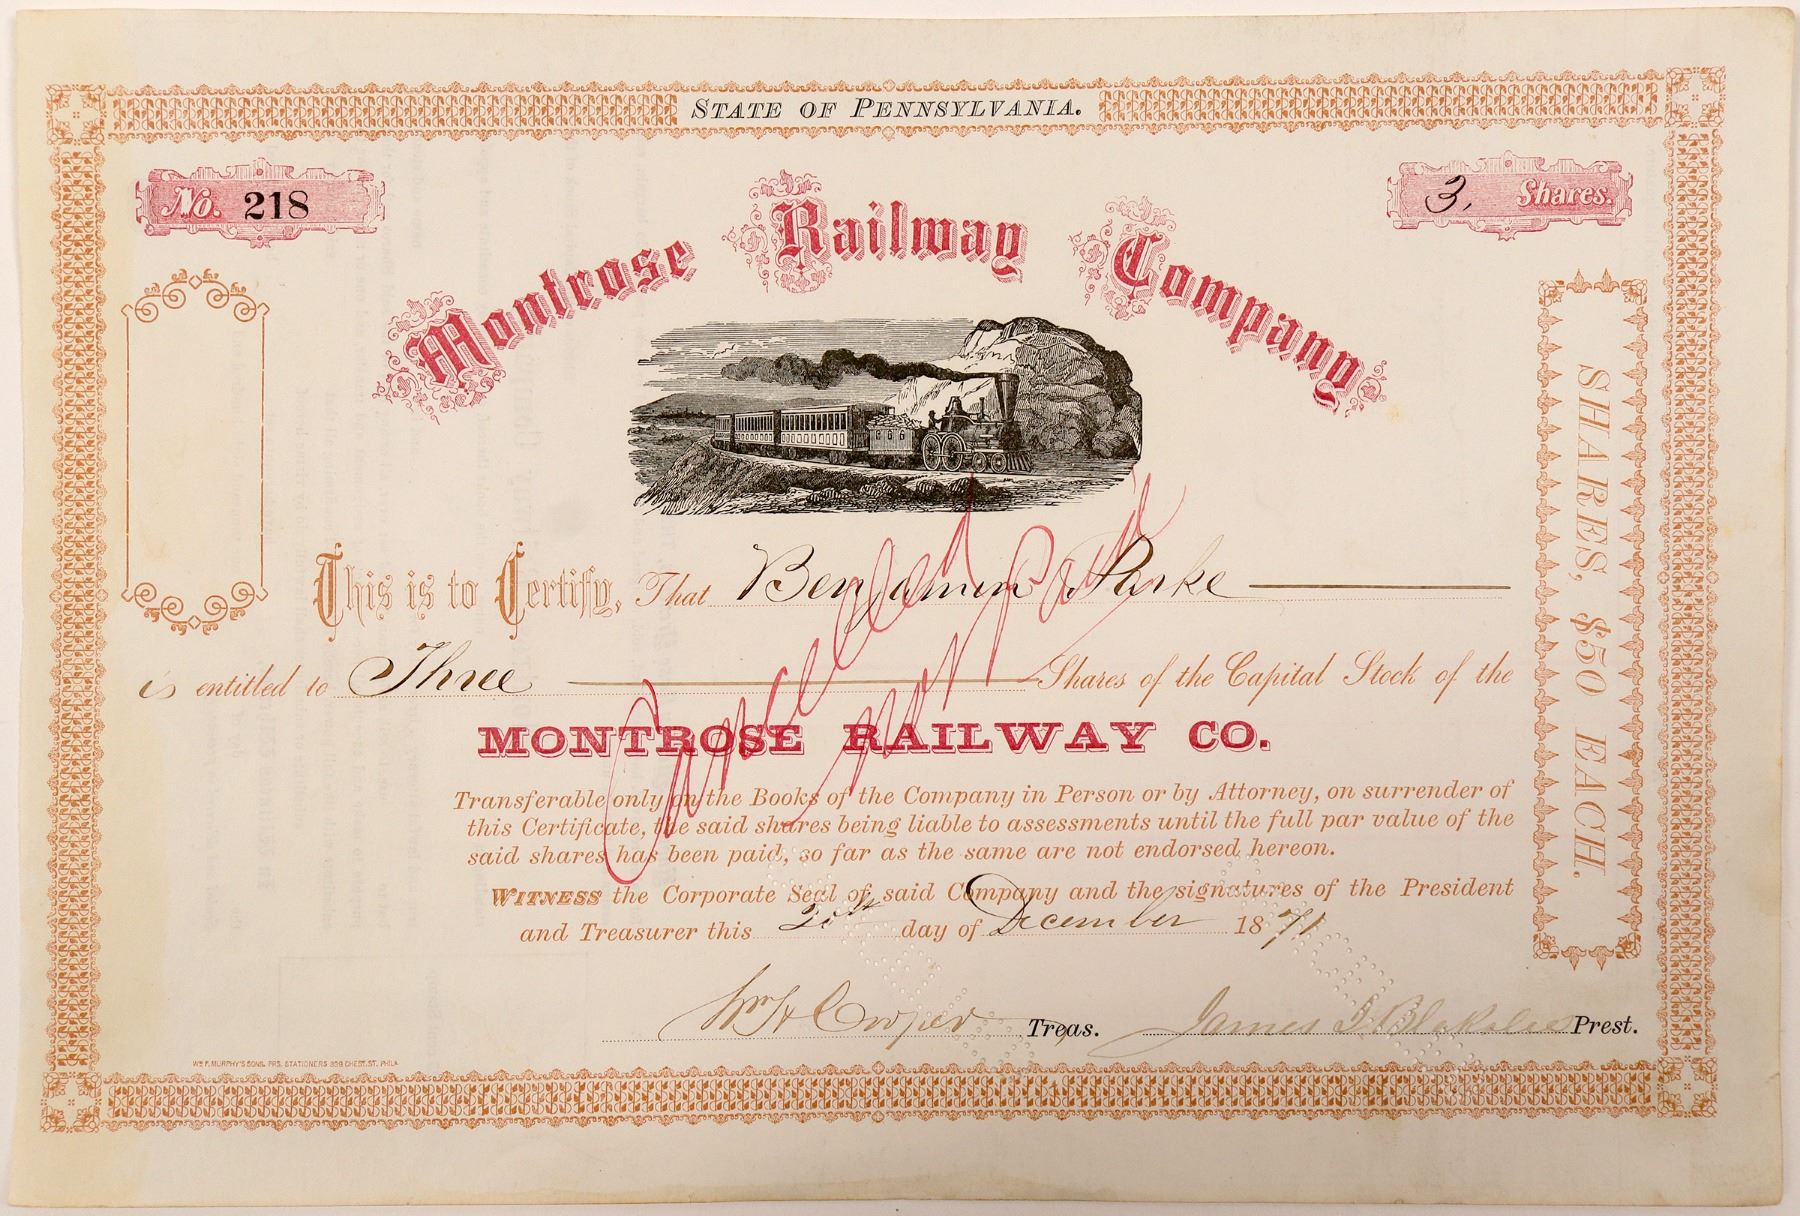 STATE OF PENNSYLVANIA.
No. 218
3. Shares.
Montrose Railway Company
This is to Certify, That Benjamin Parke
is entitled to Three Shares of the Capital Stock of the
MONTROSE RAILWAY CO.
Transferable only on the Books of the Company in Person or by Attorney, on surrender of
this Certificate, the said shares being liable to assessments until the full par value of the
said shares has been paid, so far as the same are not endorsed hereon.
WITNESS the Corporate Seal of said Company and the signatures of the President
and Treasurer this 20th day of December 1871
Wm H Cooper Treas. James I. Blakslee Prest.
SHARES, $50 EACH.
Cancelled
not Paid
WM F. MURPHY'S SONS, PRS. STATIONERS 339 CHEST. ST. PHILA